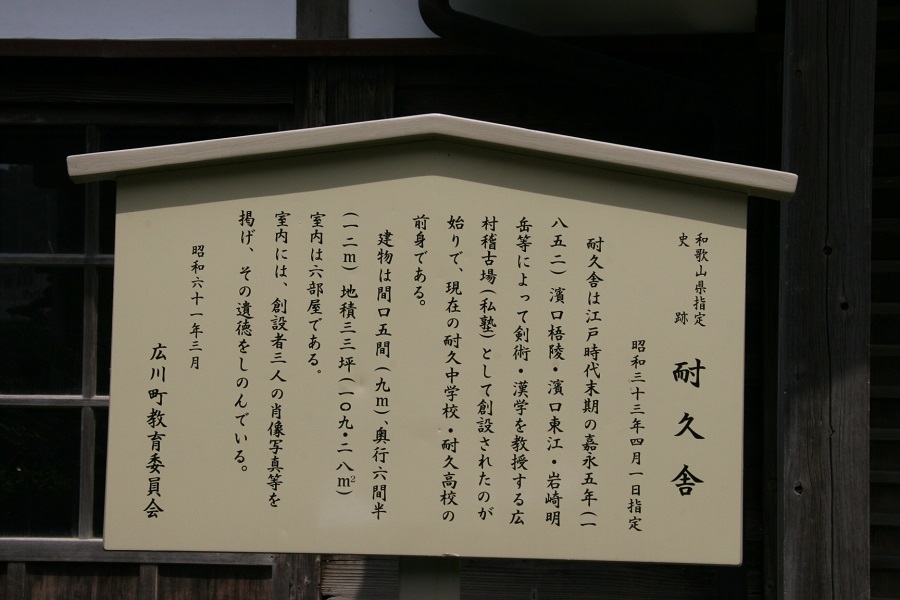 和歌山県指定
史跡
耐久舎
昭和三十三年四月一日指定
耐久舎は江戸時代末期の嘉永五年(一
八五二)濱口梧陵・濱口東江・岩崎明
岳等によって剣術・漢学を教授する広
村稽古場(私塾)として創設されたのが
始りで、現在の耐久中学校・耐久高校の
前身である。
建物は間口五間(九m)、奥行六間半
(一二m)地積三三坪(一〇九・二八m²)
室内は六部屋である。
室内には、創設者三人の肖像写真等を
掲げ、その遺徳をしのんでいる。
昭和六十一年三月
広川町教育委員会